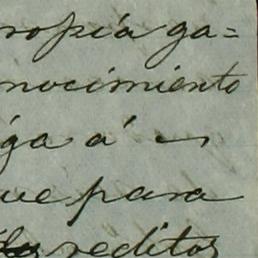 ropia ga=
nocimiento
ga á
ue para
reditos